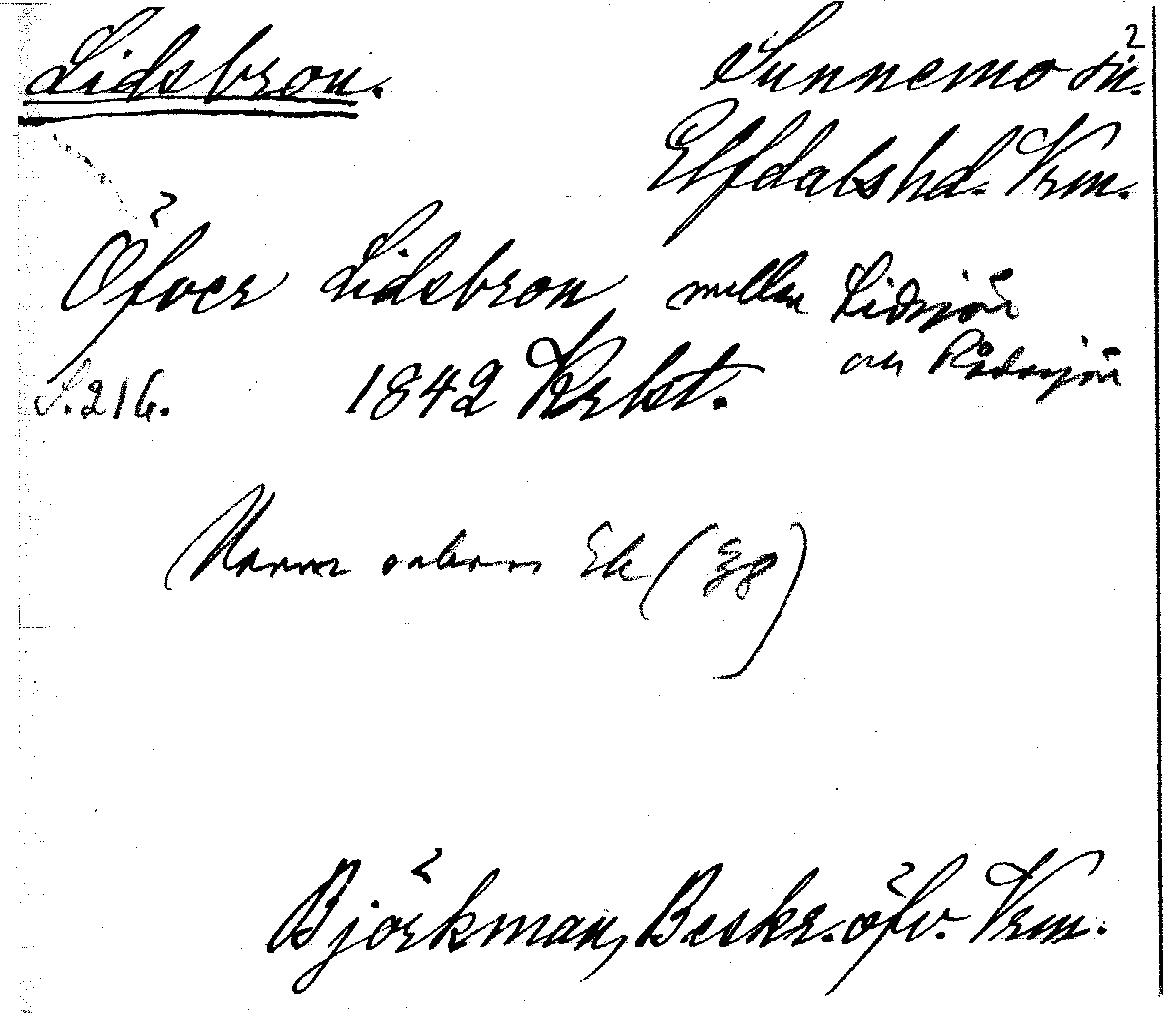 Lidsbron.
2
Sunnemo sn.
Elfdals hd. Vrm.
Öfver Lidsbron mellan Lidsjön
och Rådasjön
S. 216. 1842 Krbst.
Namn
Ek (38)
Björkman, Beskr. öfv. Vrm.